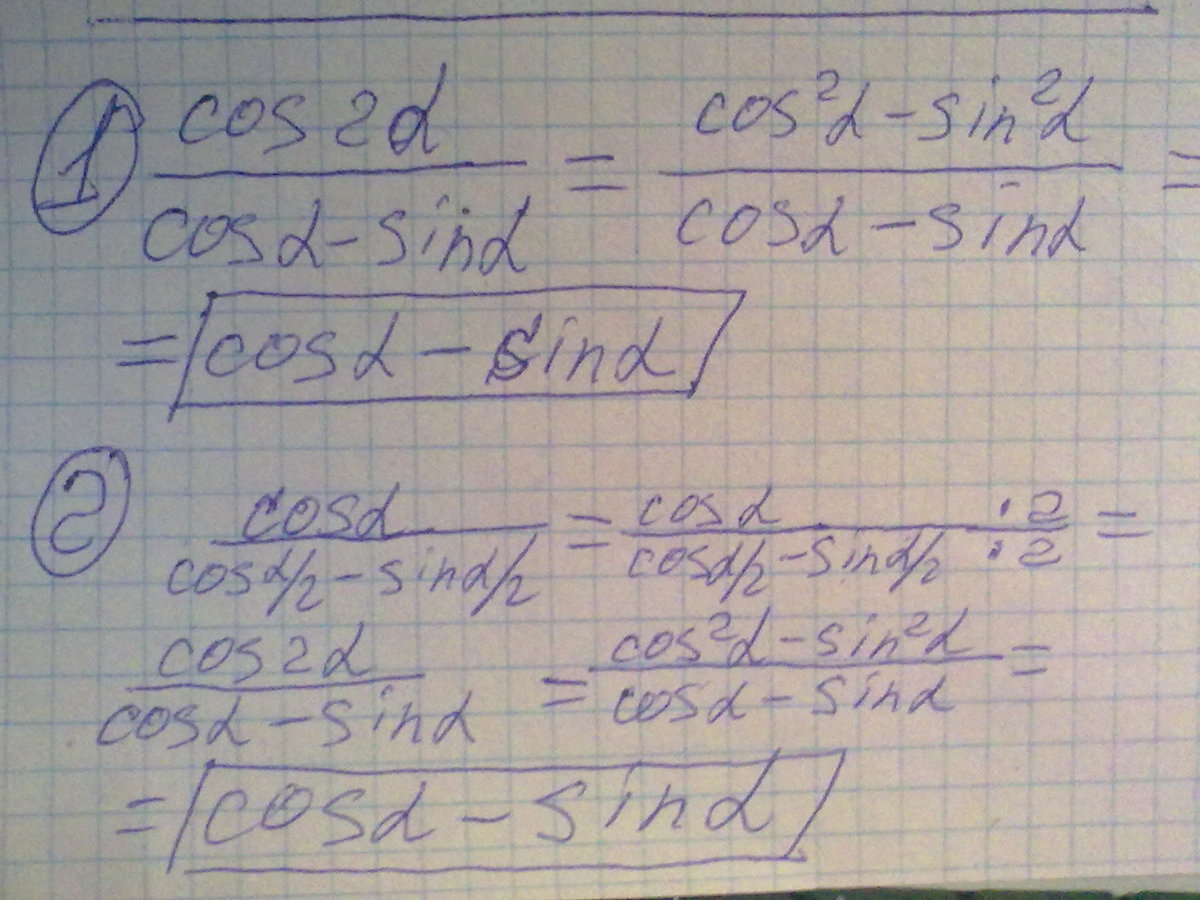 ① cos 2α / (cosα - sinα) = (cos²α - sin²α) / (cosα - sinα) =
= cosα - sinα
② cosα / (cosα/2 - sinα/2) = cosα / (cosα/2 - sinα/2) · 2 / · 2 =
cos 2α / (cosα - sinα) = (cos²α - sin²α) / (cosα - sinα) =
= cosα - sinα